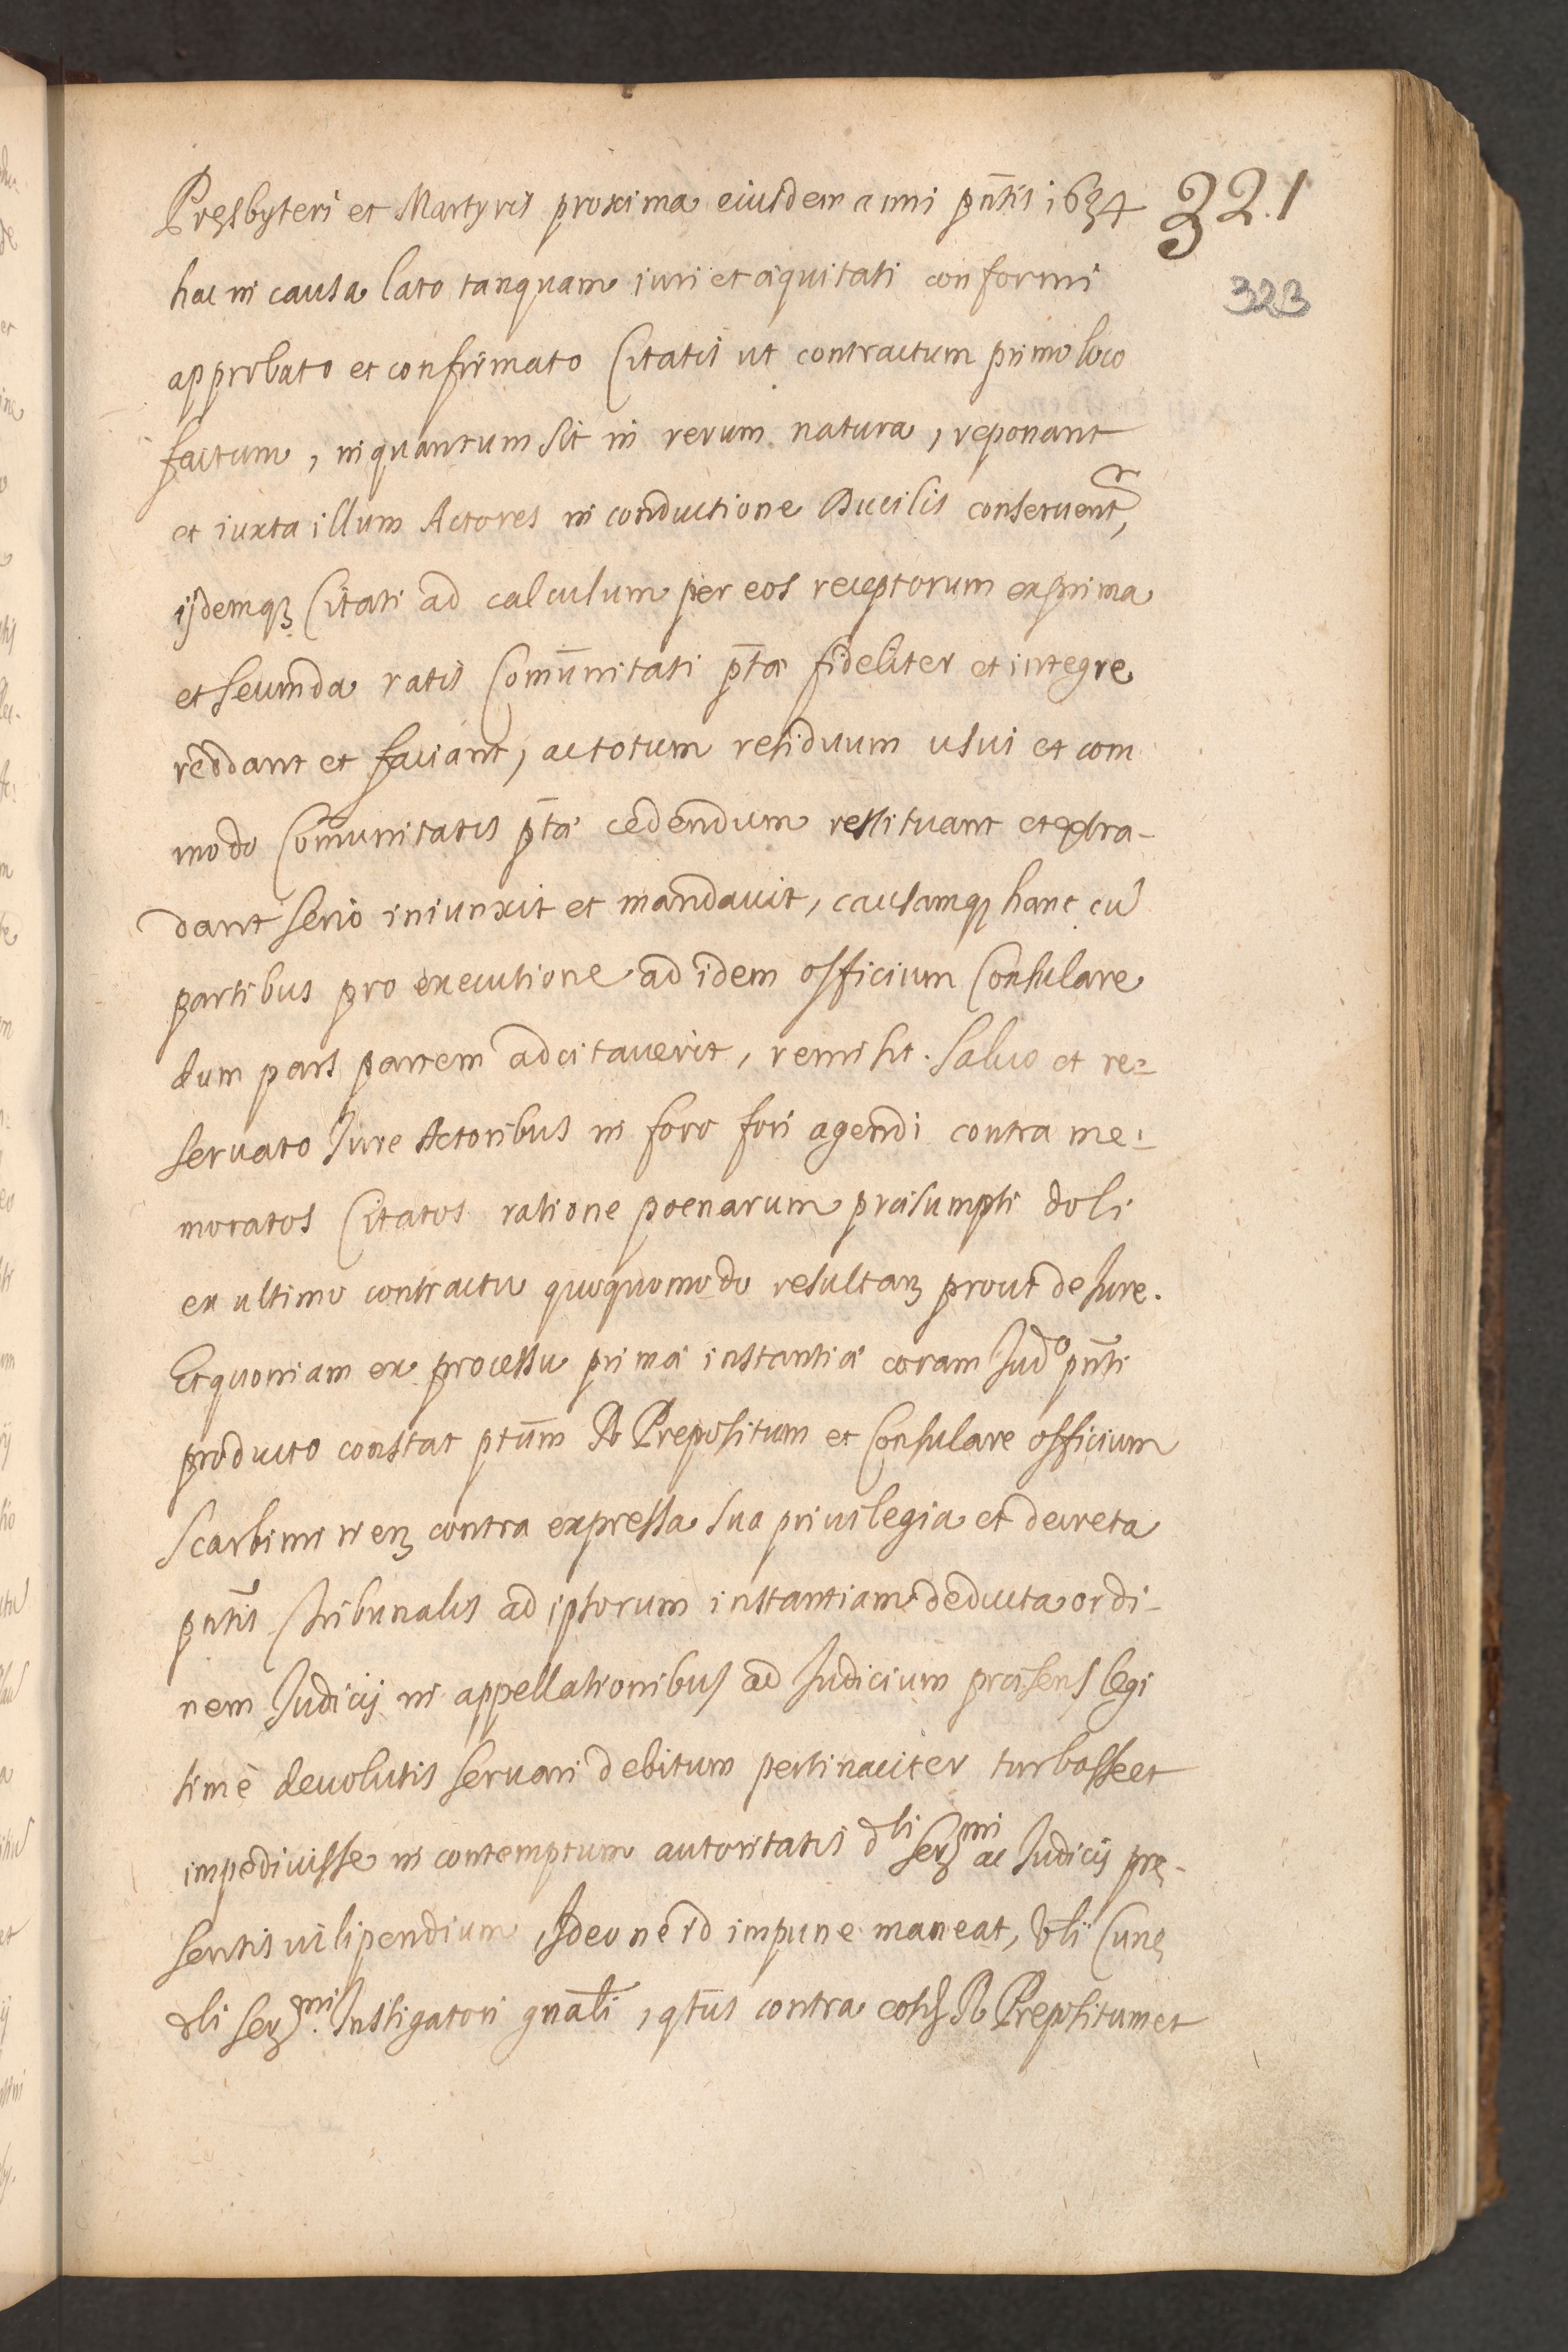 Pręsbyteri et Martyris proxima eiusdem anni pn̄tis 1634 321
323
hac in causa lato tanquam iuri et æquitati conformi
approbato et confirmato Citatis ut contractum primo loco
factum, inquantum sit in rerum natura, reponant
et iuxta illum Actores in conductione Ducilis conseruentr,
ijdemqꝫ Citati ad calculum per eos receptorum ex prima
et secunda ratis Com̄unitati p̄tæ fideliter et integre
reddant et faciant, ac totum residuum usui et com
modo Com̄unitatis p̄tæ cedendum restituant et extra-
dant serio iniunxit et mandauit, causamqꝫ hanc cū
partibus pro executione ad idem officium Consulare
dum pars partem adcitauerit, remisit. Saluo et re=
seruato Iure Actoribus in foro fori agendi contra me=
moratos Citatos ratione poenarum præsumpti doli
ex ultimo contractu quoquomodo resultanꝫ prout de Iure.
Et quoniam ex processu primæ instantiæ coram Iudo pn̄ti
producto constat ptūm R Prepositum et Consulare officium
Scarbimirienꝫ contra expressa sua priuilegia et decreta
pn̄tis Tribunalis ad ipsorum instantiam deducta ordi-
nem Iudicij in appellationibus ad Iudicium præsens legi
timè deuolutis seruari debitum pertinaciter turbasse et
impediuisse in contemptum autoritatis dli Serꝫmi ac Iudicij prę-
sentis uilipendium, Ideo ne id impune maneat, dli Curię
dli Serꝫmi Instigatori gnāli, qtūs contra eosdꝫ R Prepositum et